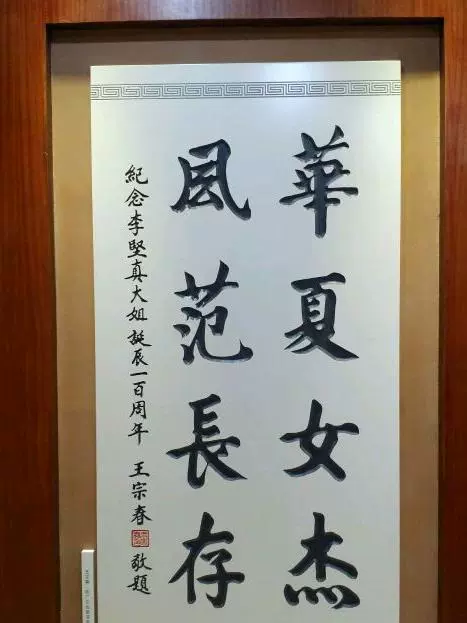 華夏女杰
风范長存
紀念李坚真大姐誕辰一百周年 王宗春 敬題